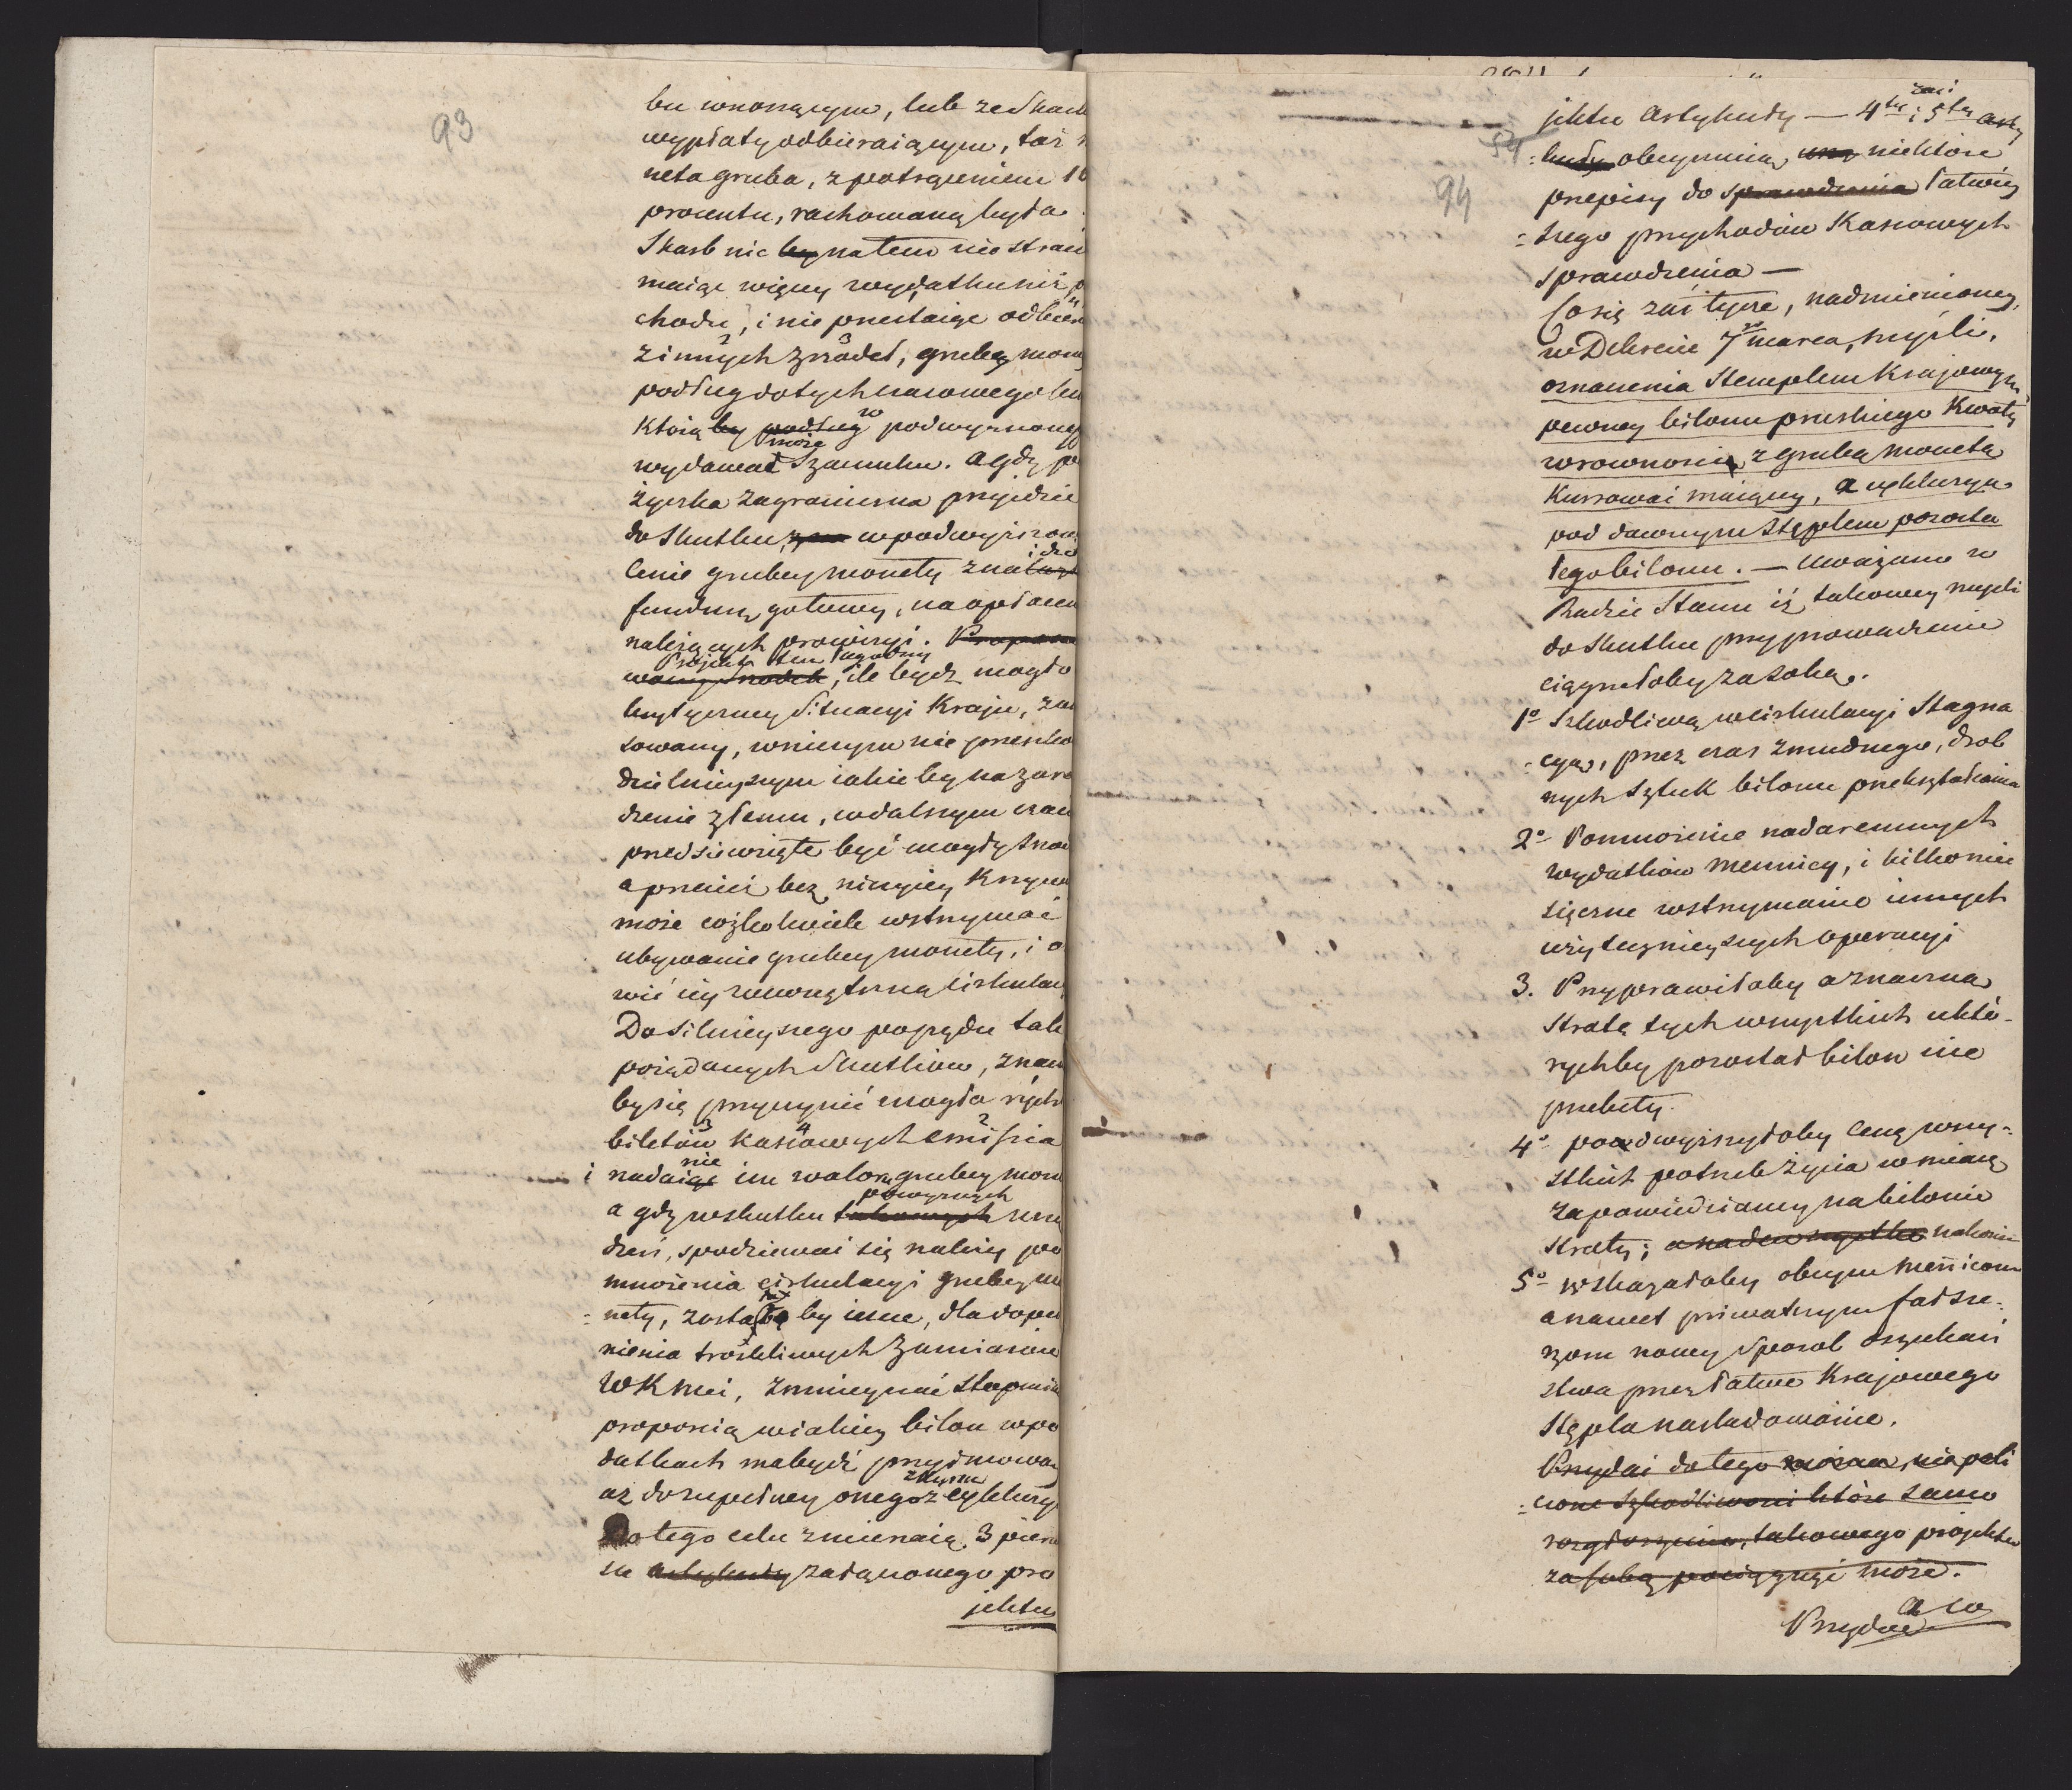 93
bu wnoszącym, lub ze Skarb
wypłaty odbieraiącym, taż
neta gruba, z potrąceniem 10
procentu, rachowaną była.
Skarb nic by na tem nie strac
maiąc więcey wydatku niż p
chodu, i nie przestaiąc odbier
z innych zrzódeł, grubą mon
podług dotychczasowego
którą by podług w podwyższoney
może
wydawać Szacunku. a gdy po
życzka zagraniczna przyidzie
do Skutku, w podwyższon
cenie grubey monety
fundusz gotowy, na opłacen
należących prowizyi. Propono
Projekt ten łagodny
wany Srodek, ile bydź mogło
krytyczney Situacyi Kraju, za
sowany, w niczym nie przeszko
dzielnieyszym iakie by na zara
dzenie złemu, w dalszym czas
przedsiewzięte być mogły
a przecież bez niczyiey Krzyw
może cożkolwiek wstrzymać
ubywanie grubey monety, i o
wić iey wewnętrzną cirkulac
Do silnieyszego popędu tak
pożądanych Skutków, znacz
by się przyczynić mogła rych
biletów kassowych emissia
nie
i nadaiąc im waloru grubey mon
powyższych
a gdy w skutku takowych urzą
dzeń, spodziewać się należy po
mnożenia cirkulacyi grubey mo
nety, zostało by iescze, dla dopeł
nienia troskliwych Zamiarów
WKMci, zmnieyszać Stopniami
proporcią w iakiey bilon w po
datkach ma bydź przyimowan
aż do zupełney onegoż exkluzy
Do tego celu zmierzaią 3 pierw
sze artykuły załączonego pro
jektu
94
zaś
jektu Artykuły — 4ty i 5ty arty
kuły obeymuią niektóre
przepisy do sprawdzenia łatwiey
szego przychodów Kassowych
sprawdzenia —
Co się zaś tycze, nadmienioney
w Dekrecie 7go marca, myśli,
oznaczenia Stemplem Krajowym
pewney bilonu pruskiego Kwoty
w rowności z grubą monetą
Kursować maiącey, a exkluzyą
pod dawnym Stęplem pozosta
łego bilonu. — Uważano w
Radzie Stanu iż takowey myśli
do skutku przyprowadzenie
ciągnełoby za sobą.
1o Szkodliwą w cirkulacyi Stagna
cyą, przez czas zmudnego, drob
nych Sztuk bilonu przekształcenia
2o Pomnożenie nadaremnych
wydatków mennicy, i kilkomie
sięczne wstrzymanie innych
użytecznieyszych operacyi
3. Przyprawiłoby o znaczną
Stratę tych wszystkich u któ
rychby pozostał bilon nie
przebity.
4o podwyższyłoby Cenę wszy
stkich potrzeb życia w miarę
zapowiedzianey na bilonie
Straty; a nade wszystko nakoniec
5o wskazałoby obcym Mennicom
a nawet priwatnym fałsze
rzom nowy Sposob oszukań
stwa przez łatwe Krajowego
Stępla nasladowanie.
Przydać do tego można, niepoli
czone szkodliwości które samo
rozgłoszenie, takowego projektu
za sobą pociągnąć może.
a co
Przydać